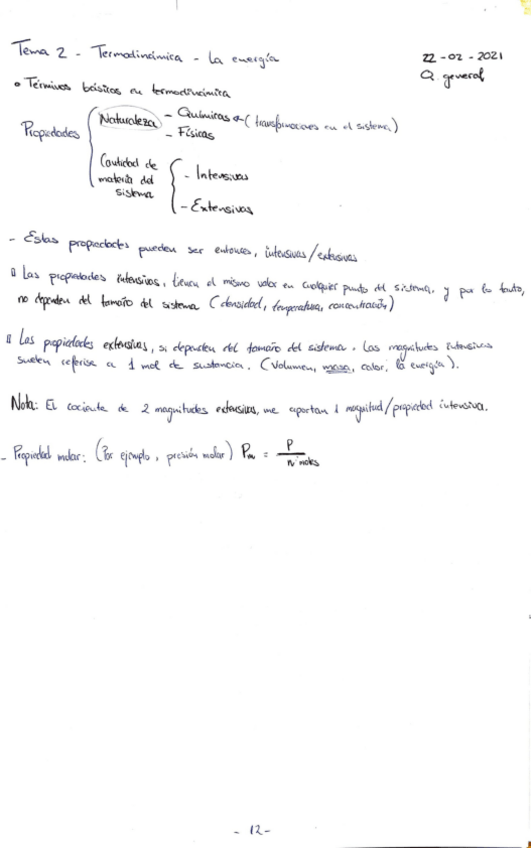 Tema 2 - Termodinámica - La energía
22-02-2021
Q. general
• Términos básicos en termodinámica
Propiedades
Naturaleza
- Químicas → (transformaciones en el sistema)
- Físicas
Cantidad de
materia del
sistema
- Intensivas
- Extensivas
- Estas propiedades pueden ser entonces, intensivas/extensivas
Las propiedades intensivas, tienen el mismo valor en cualquier punto del sistema, y por lo tanto,
no dependen del tamaño del sistema (densidad, temperatura, concentración)
Las propiedades extensivas, si dependen del tamaño del sistema. Las magnitudes intensivas
suelen referirse a 1 mol de sustancia. (Volumen, masa, calor, la energía).
Nota: El cociente de 2 magnitudes extensivas, me aportan 1 magnitud/propiedad intensiva.
- Propiedad molar: (Por ejemplo, presión molar) Pm = P / nº moles
- 12 -